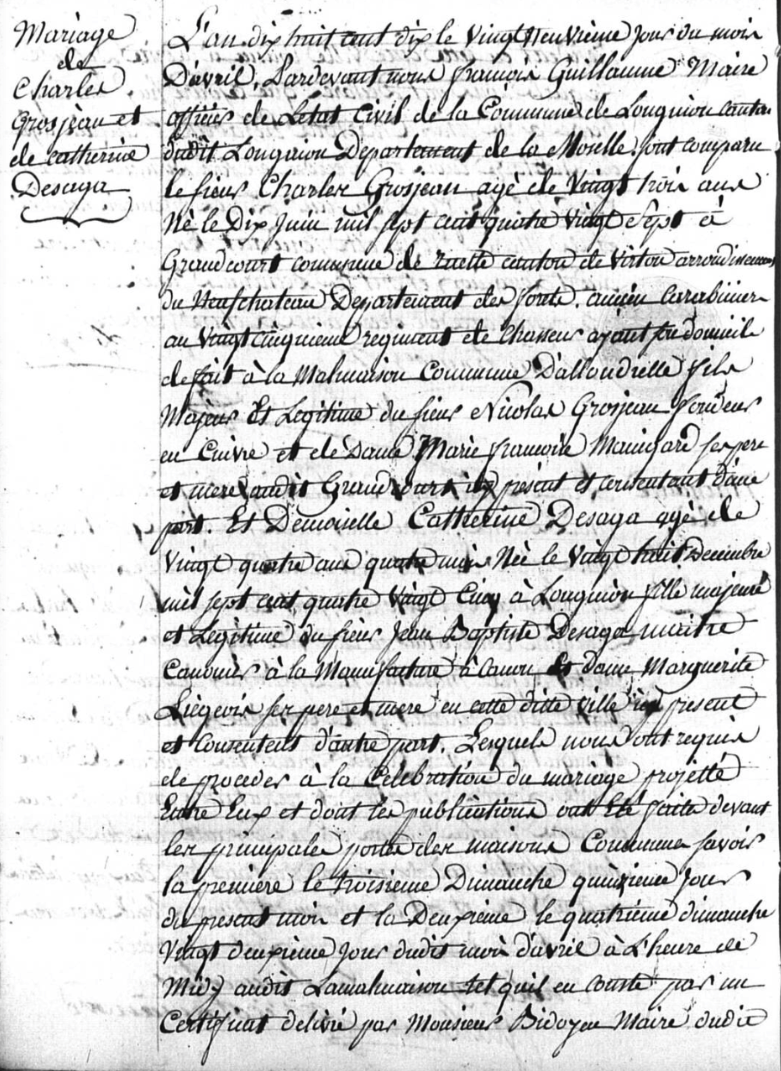 Mariage
de
Charles
Grosjean et
de catherine
Desaga
L'an dix huit cent dix le Vingt neuvieme Jour du mois
D'avril, Pardevant nous francois Guillaume Maire
officier de Letat Civil de la Commune de Longuion canton
dudit Longuion Departement de la Moselle, sont comparu
le sieur Charles Grosjean agé de Vingt trois ans
Né le Dix Juin mil sept cent quatre vingt sèpt à
Grandcourt commune de ruette canton de Virton arrondissement
du Neufchateau Departement des forêt. ancien Carabinier
au Vingt cinquieme regiment de Chasseur ayant son domicile
de fait à la Malmaison Commune D'allondrelle fils
Majeur Et Legitime du sieur Nicolas Grosjean fondeur
en Cuivre et de Dame Marie francoise Mainjard ses pere
et mere audit Grandcourt icy présent et consentant d'une
part. Et Demoiselle Catherine Desaga agé de
Vingt quatre ans quatre mois Née le Vingt huit Decembre
mil sept cent quatre Vingt Cinq à Longuion fille majeure
et Légitime du sieur Jean Baptiste Desaga maitre
Canonier à la Manufacture à Canon Et dame Marguerite
Liegeois ses pere et mere en cette ditte ville icy present
et Consentent d'autre part. Lesquels nous ont requis
de proceder à la Célébration du mariage projetté
Entre Eux et dont les publications ont Eté faite devant
les principales porte des maisons Commune savoir
la premiere le troisieme Dimanche quinzieme Jour
du present mois et la Deuxieme le quatrieme dimanche
Vingt deuxieme Jour dudit mois d'avril à L'heure de
Midy audit Lamalmaison tel quil en conste par un
Certificat delivré par Monsieur Bidoyen Maire dudit